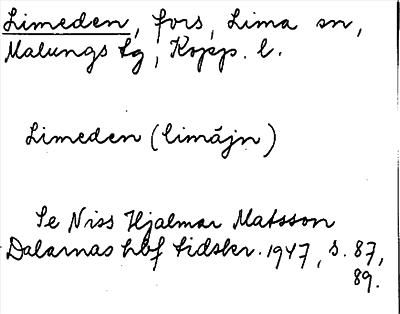 Limeden, fors, Lima sn,
Malungs tg, Kopp. l.
Limeden (limájn)
Se Niss Hjalmar Matsson
Dalarnas hbf tidskr. 1947, s. 87,
89.